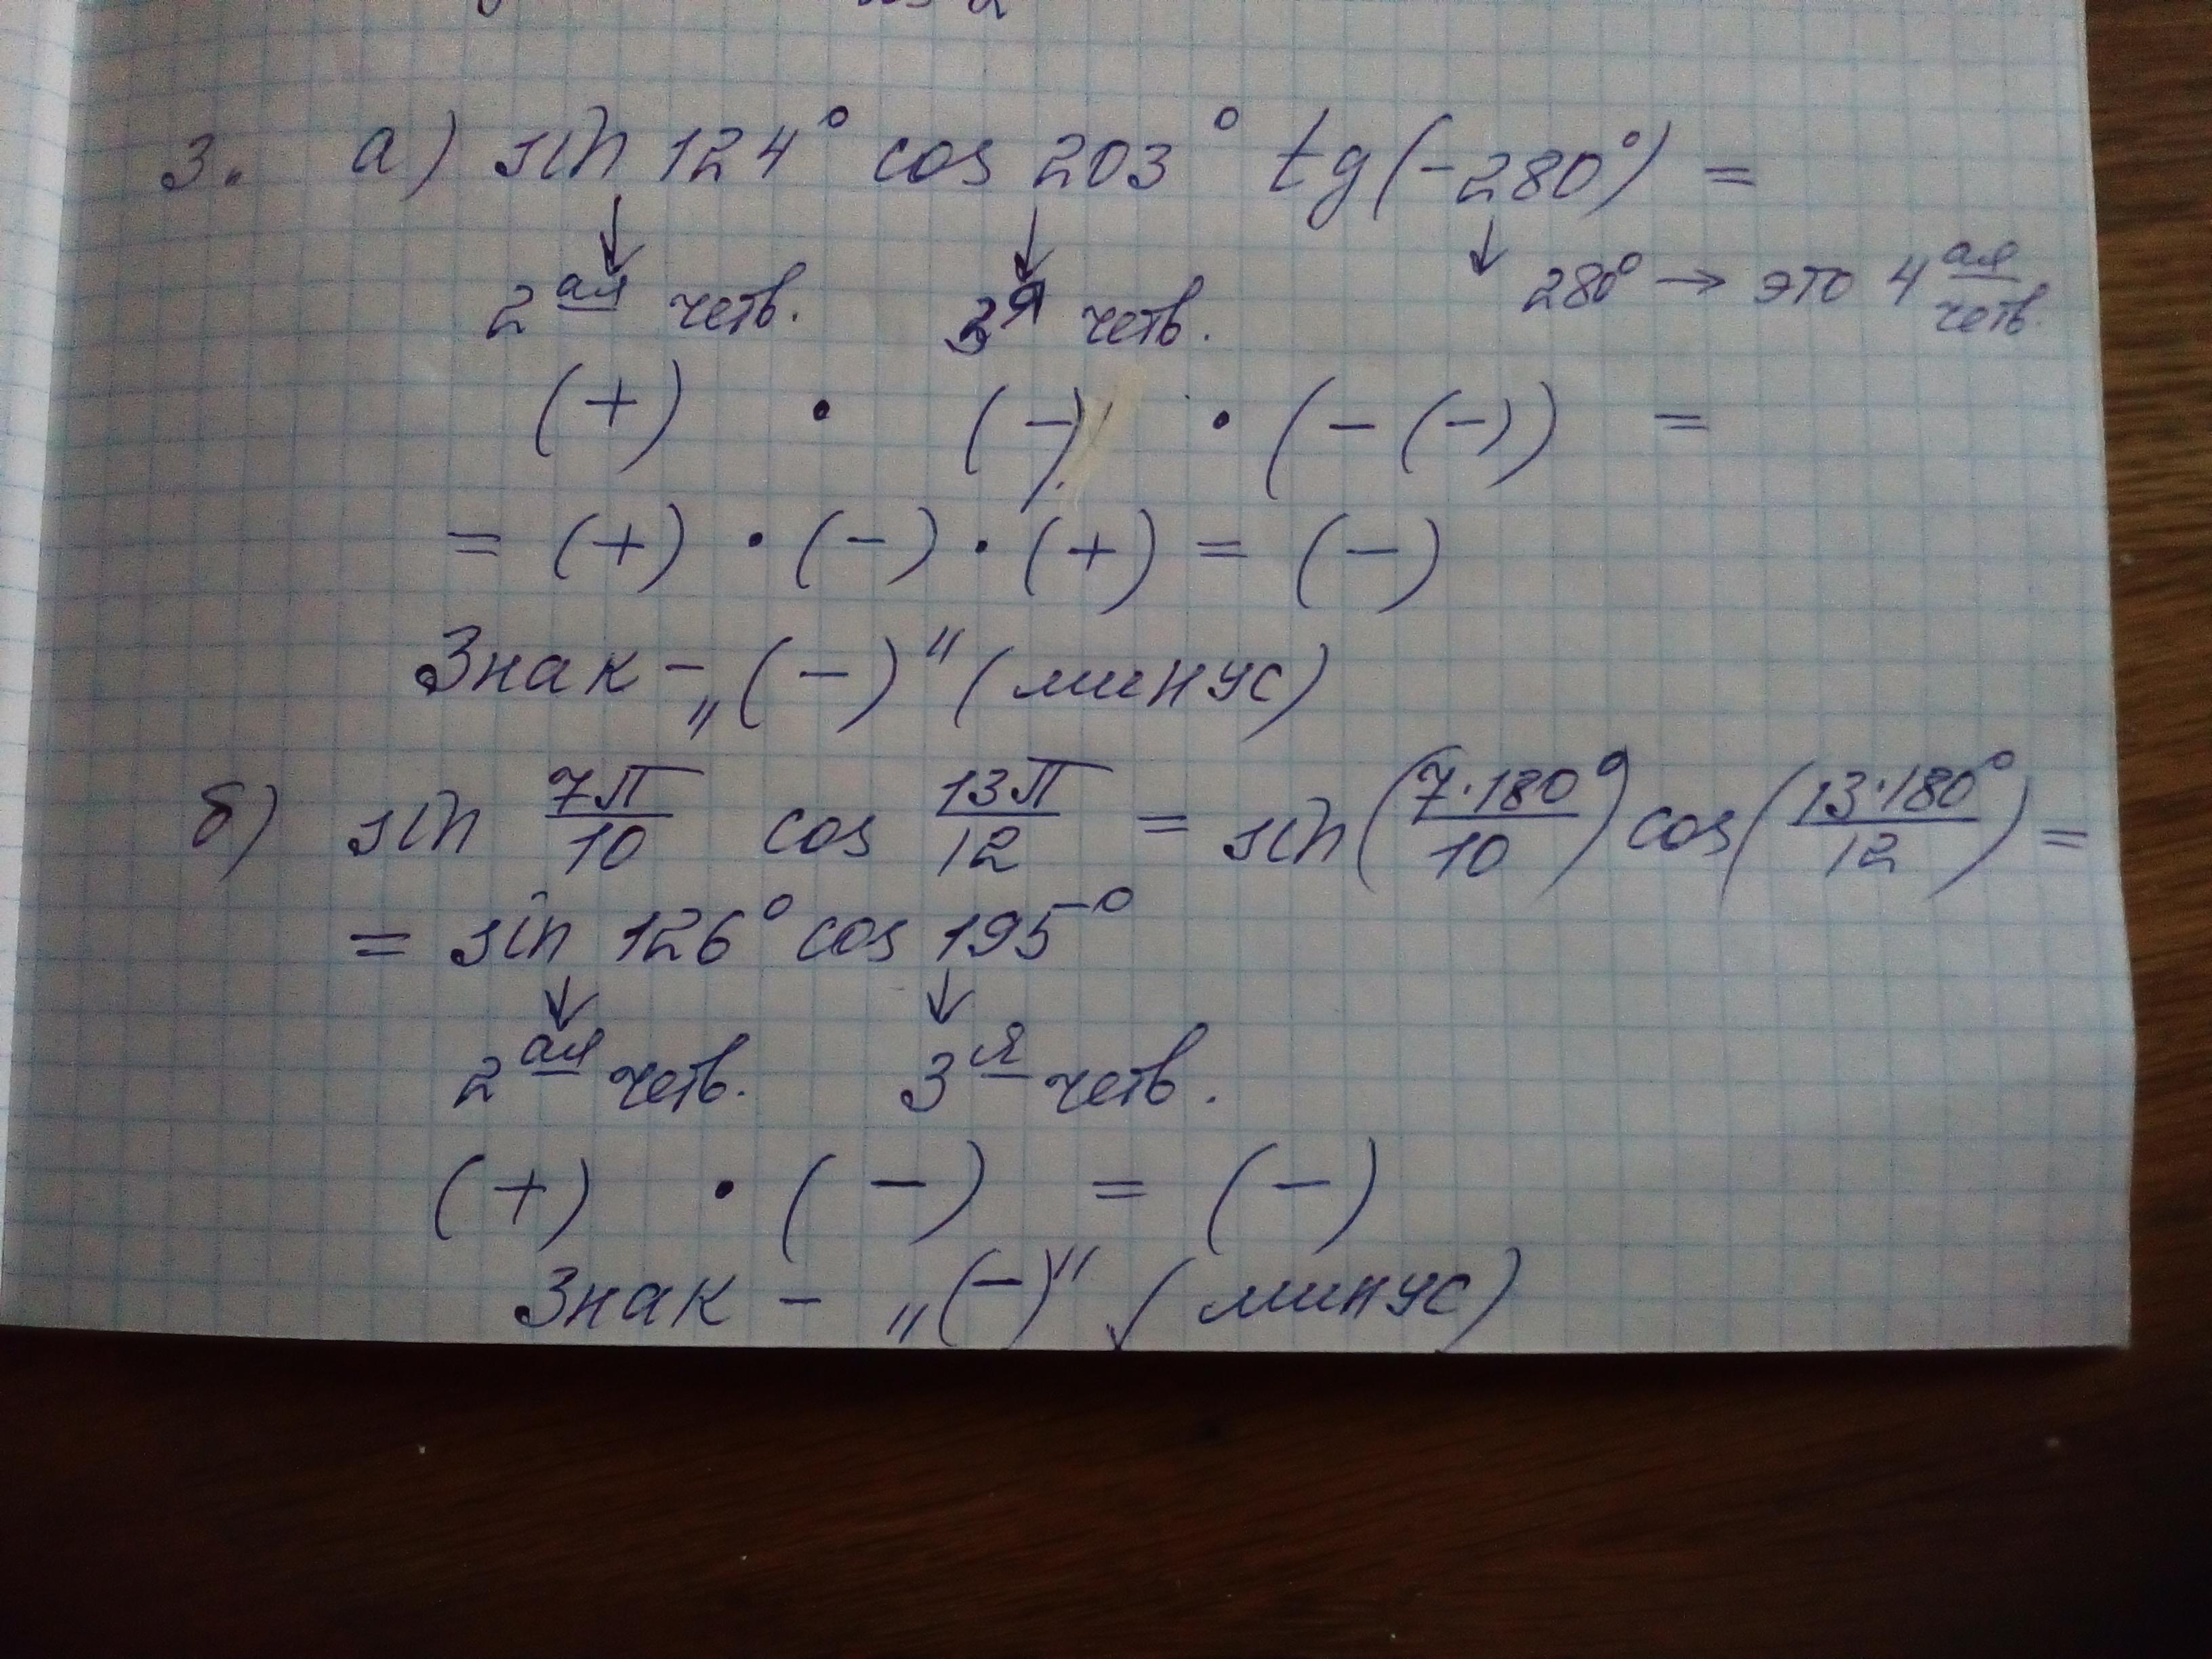 3. а) sin 124° cos 203° tg(-280°) =
2ая четв. 3я четв. 280° → это 4ая четв.
(+) · (-) · (-(-)) =
= (+) · (-) · (+) = (-)
Знак - „(-)" (минус)
б) sin 7π/10 cos 13π/12 = sin(7·180°/10) cos(13·180°/12) =
= sin 126° cos 195°
2ая четв. 3я четв.
(+) · (-) = (-)
Знак - „(-)" (минус)